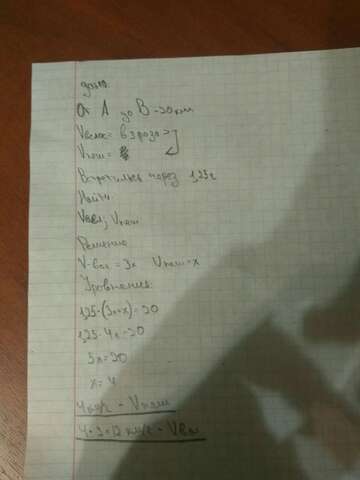 дано.
От А до В - 20км
Vвелос = в 3 раза >
Vпеш =
Встретились через 1,25ч
Найти
Vвел, Vпеш
Решение
V-вел = 3x Vпеш-x
Уровнения
1,25·(3x+x)=20
1,25·4x=20
5x=20
x=4
4км/ч - Vпеш
4·3=12 км/ч - Vвел